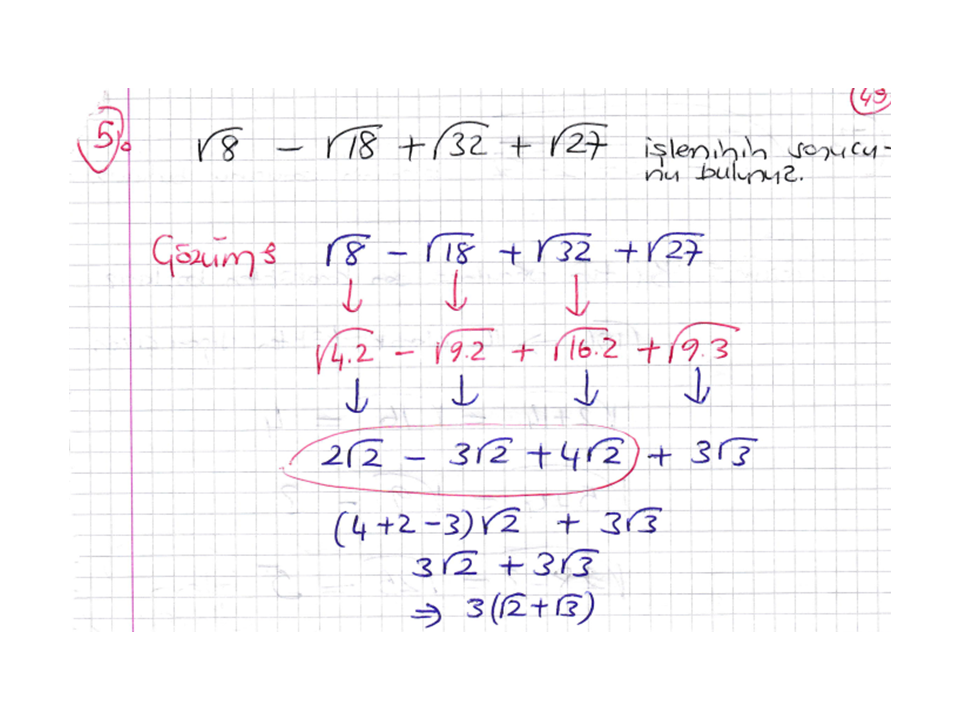 49
5. √8 − √18 + √32 + √27 işleminin sonucu-
nu bulunuz.
Çözüm: √8 − √18 + √32 + √27
↓ ↓ ↓
√4.2 − √9.2 + √16.2 + √9.3
↓ ↓ ↓ ↓
2√2 − 3√2 + 4√2 + 3√3
(4+2−3)√2 + 3√3
3√2 + 3√3
⇒ 3(√2+√3)